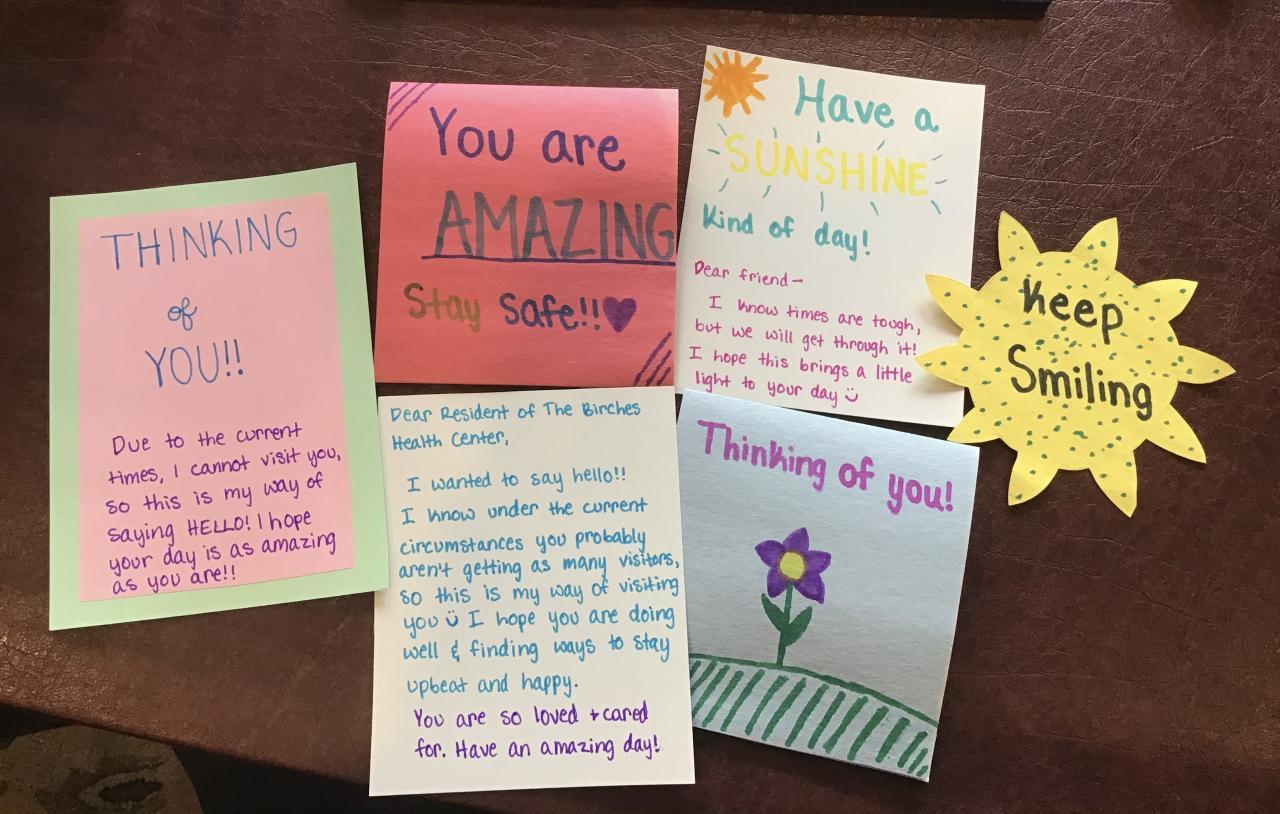 THINKING
of
YOU!!
Due to the current
times, I cannot visit you,
so this is my way of
saying HELLO! I hope
your day is as amazing
as you are!!
You are
AMAZING
Stay Safe!!
Dear Resident of The Birches
Health Center,
I wanted to say hello!!
I know under the current
circumstances you probably
aren't getting as many visitors,
so this is my way of visiting
you I hope you are doing
well & finding ways to stay
upbeat and happy.
You are so loved + cared
for. Have an amazing day!
Have a
SUNSHINE
Kind of day!
Dear friend-
I know times are tough,
but we will get through it!
I hope this brings a little
light to your day
Thinking of you!
Keep
Smiling